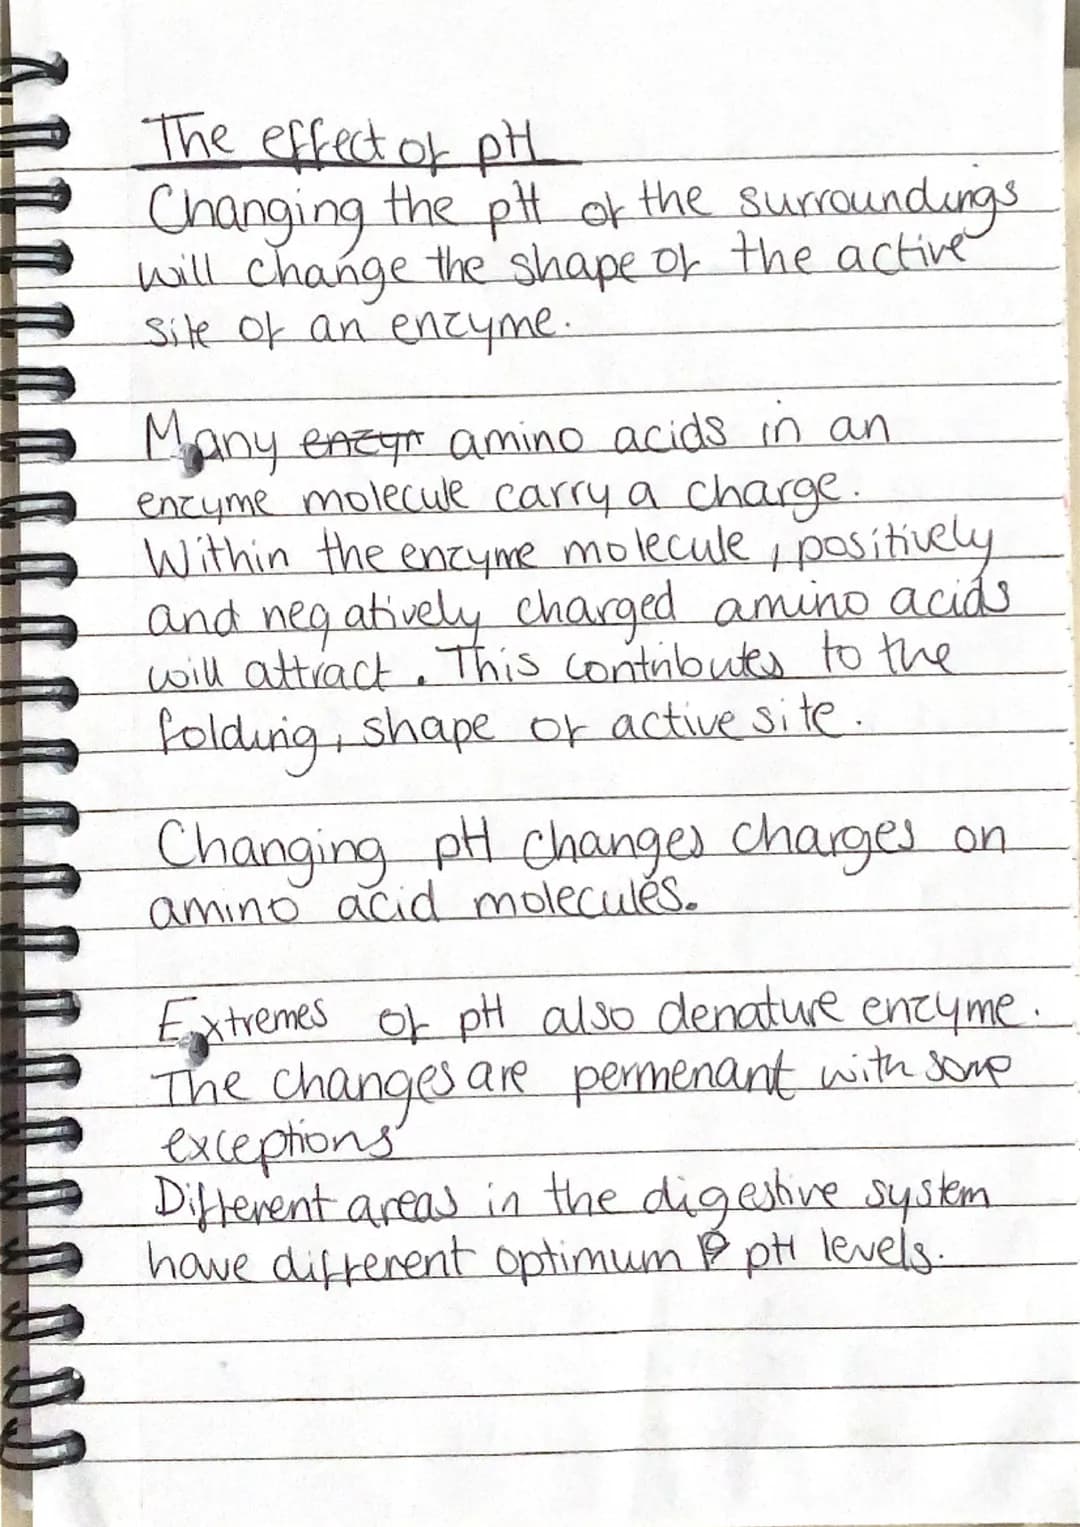 The effect of pH
Changing the pH of the surroundings
will change the shape of the active
site of an enzyme.
Many enzym amino acids in an
enzyme molecule carry a charge.
Within the enzyme molecule, positively
and negatively charged amino acids
will attract. This contributes to the
folding, shape of active site.
Changing pH changes charges on
amino acid molecules.
Extremes of pH also denature enzyme.
The changes are permenant with some
exceptions
Different areas in the digestive system
have different optimum P pH levels.